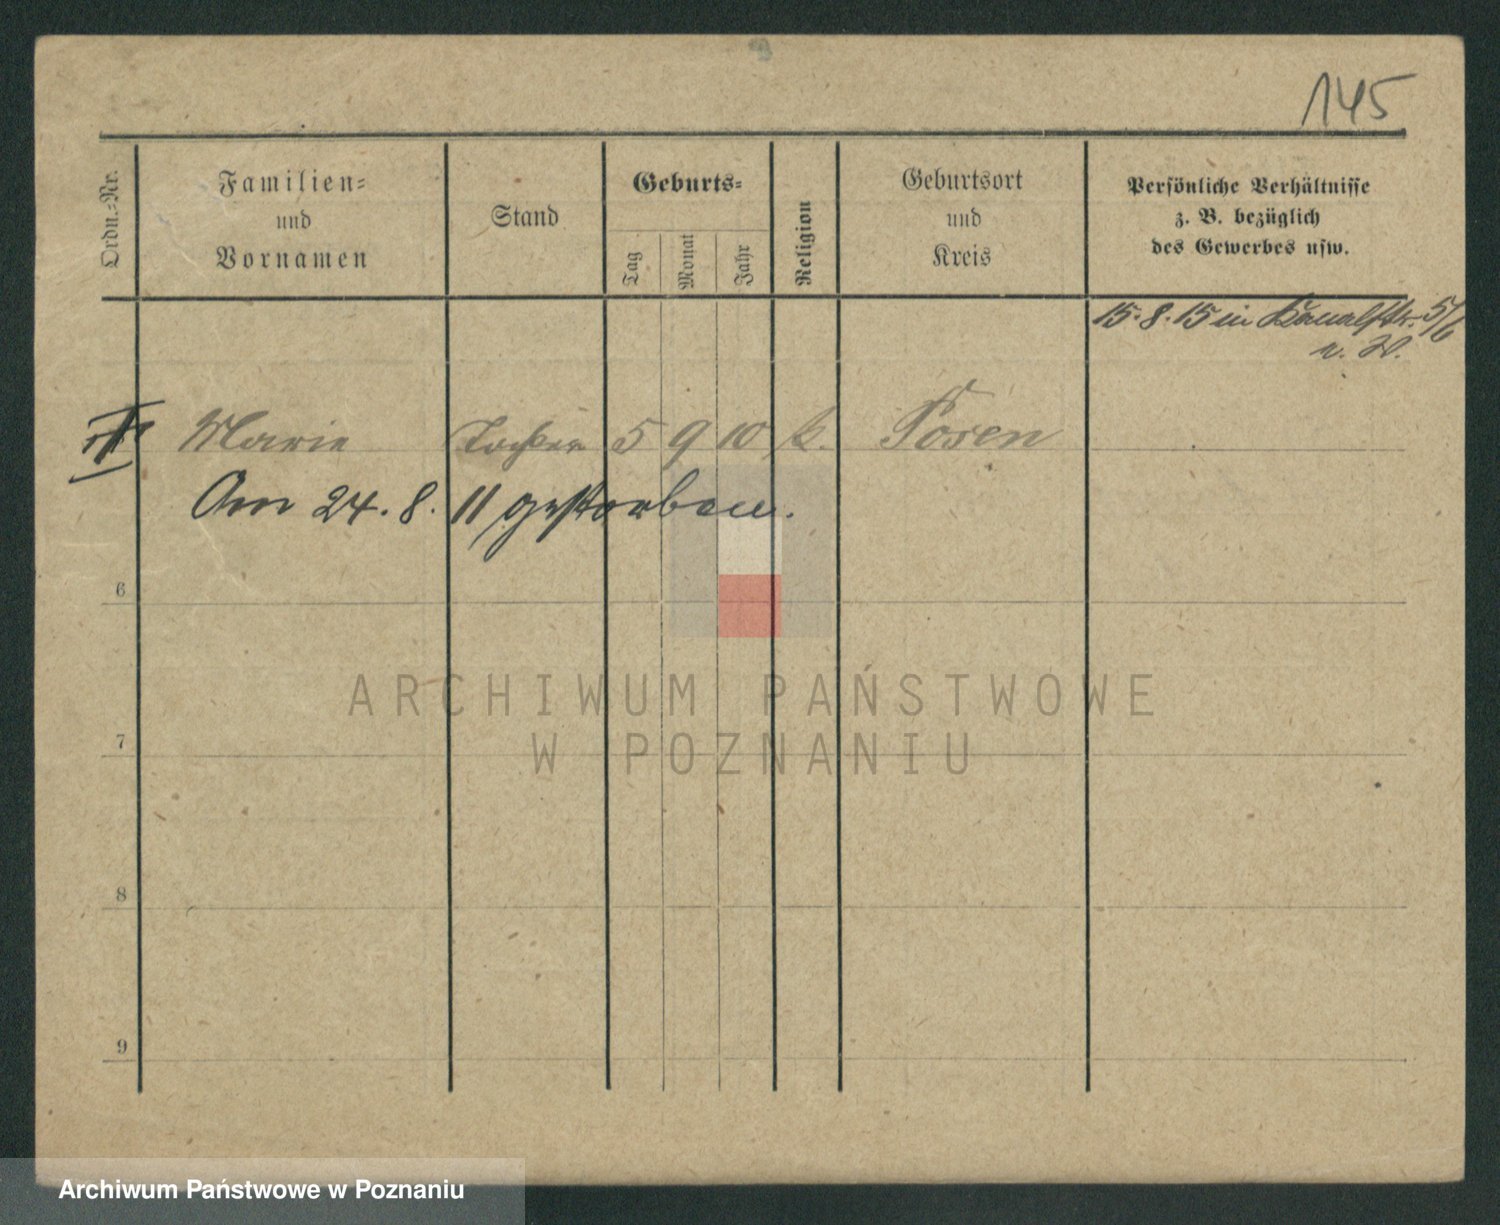 145
Ordn.-Nr.
Familien-
und
Vornamen
Stand
Geburts-
Tag
Monat
Jahr
Religion
Geburtsort
und
Kreis
Persönliche Verhältnisse
z. B. bezüglich
des Gewerbes usw.
15. 8. 15 in Kanalstr. 5/6
Marie Tochter 5 9 10 k. Posen
Am 24. 8. 11 gestorben.
6
7
8
9
ARCHIWUM PAŃSTWOWE
W POZNANIU
Archiwum Państwowe w Poznaniu